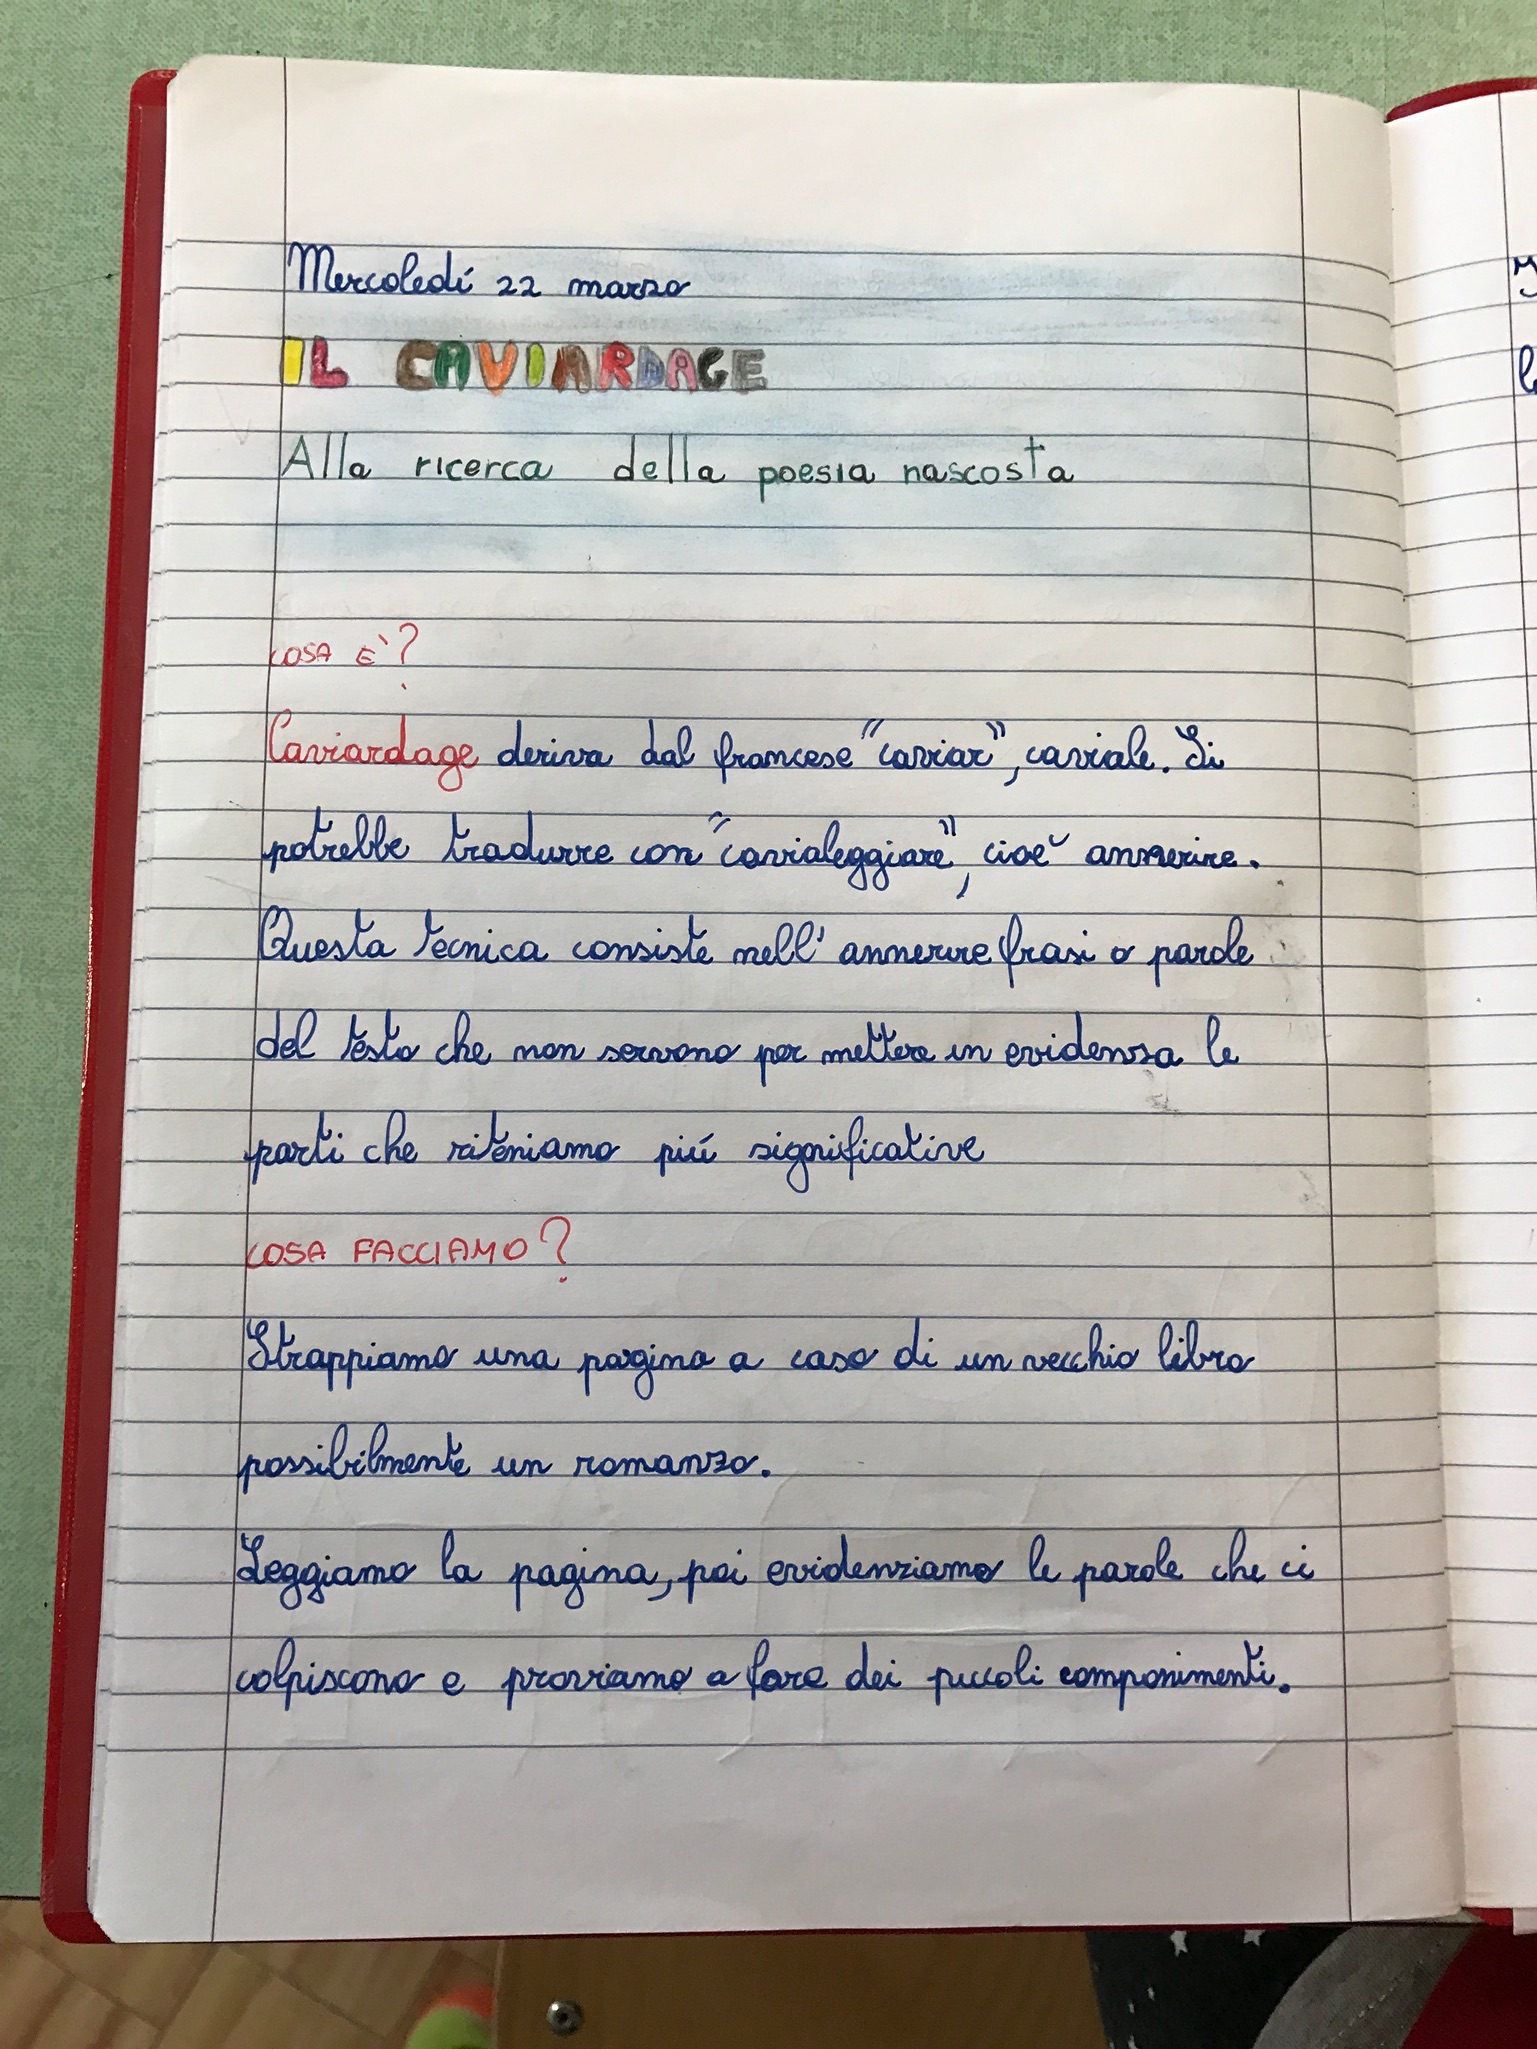 Mercoledí 22 marzo
IL CAVIARDAGE
Alla ricerca della poesia nascosta
COSA E'?
Caviardage deriva dal francese "caviar", caviale. Si
potrebbe tradurre con "cavialeggiare", cioè annerire.
Questa tecnica consiste nell'annerire frasi o parole
del testo che non servono per mettere in evidenza le
parti che riteniamo piú significative
COSA FACCIAMO?
Strappiamo una pagina a caso di un vecchio libro
possibilmente un romanzo.
Leggiamo la pagina, poi evidenziamo le parole che ci
colpiscono e proviamo a fare dei piccoli componimenti.